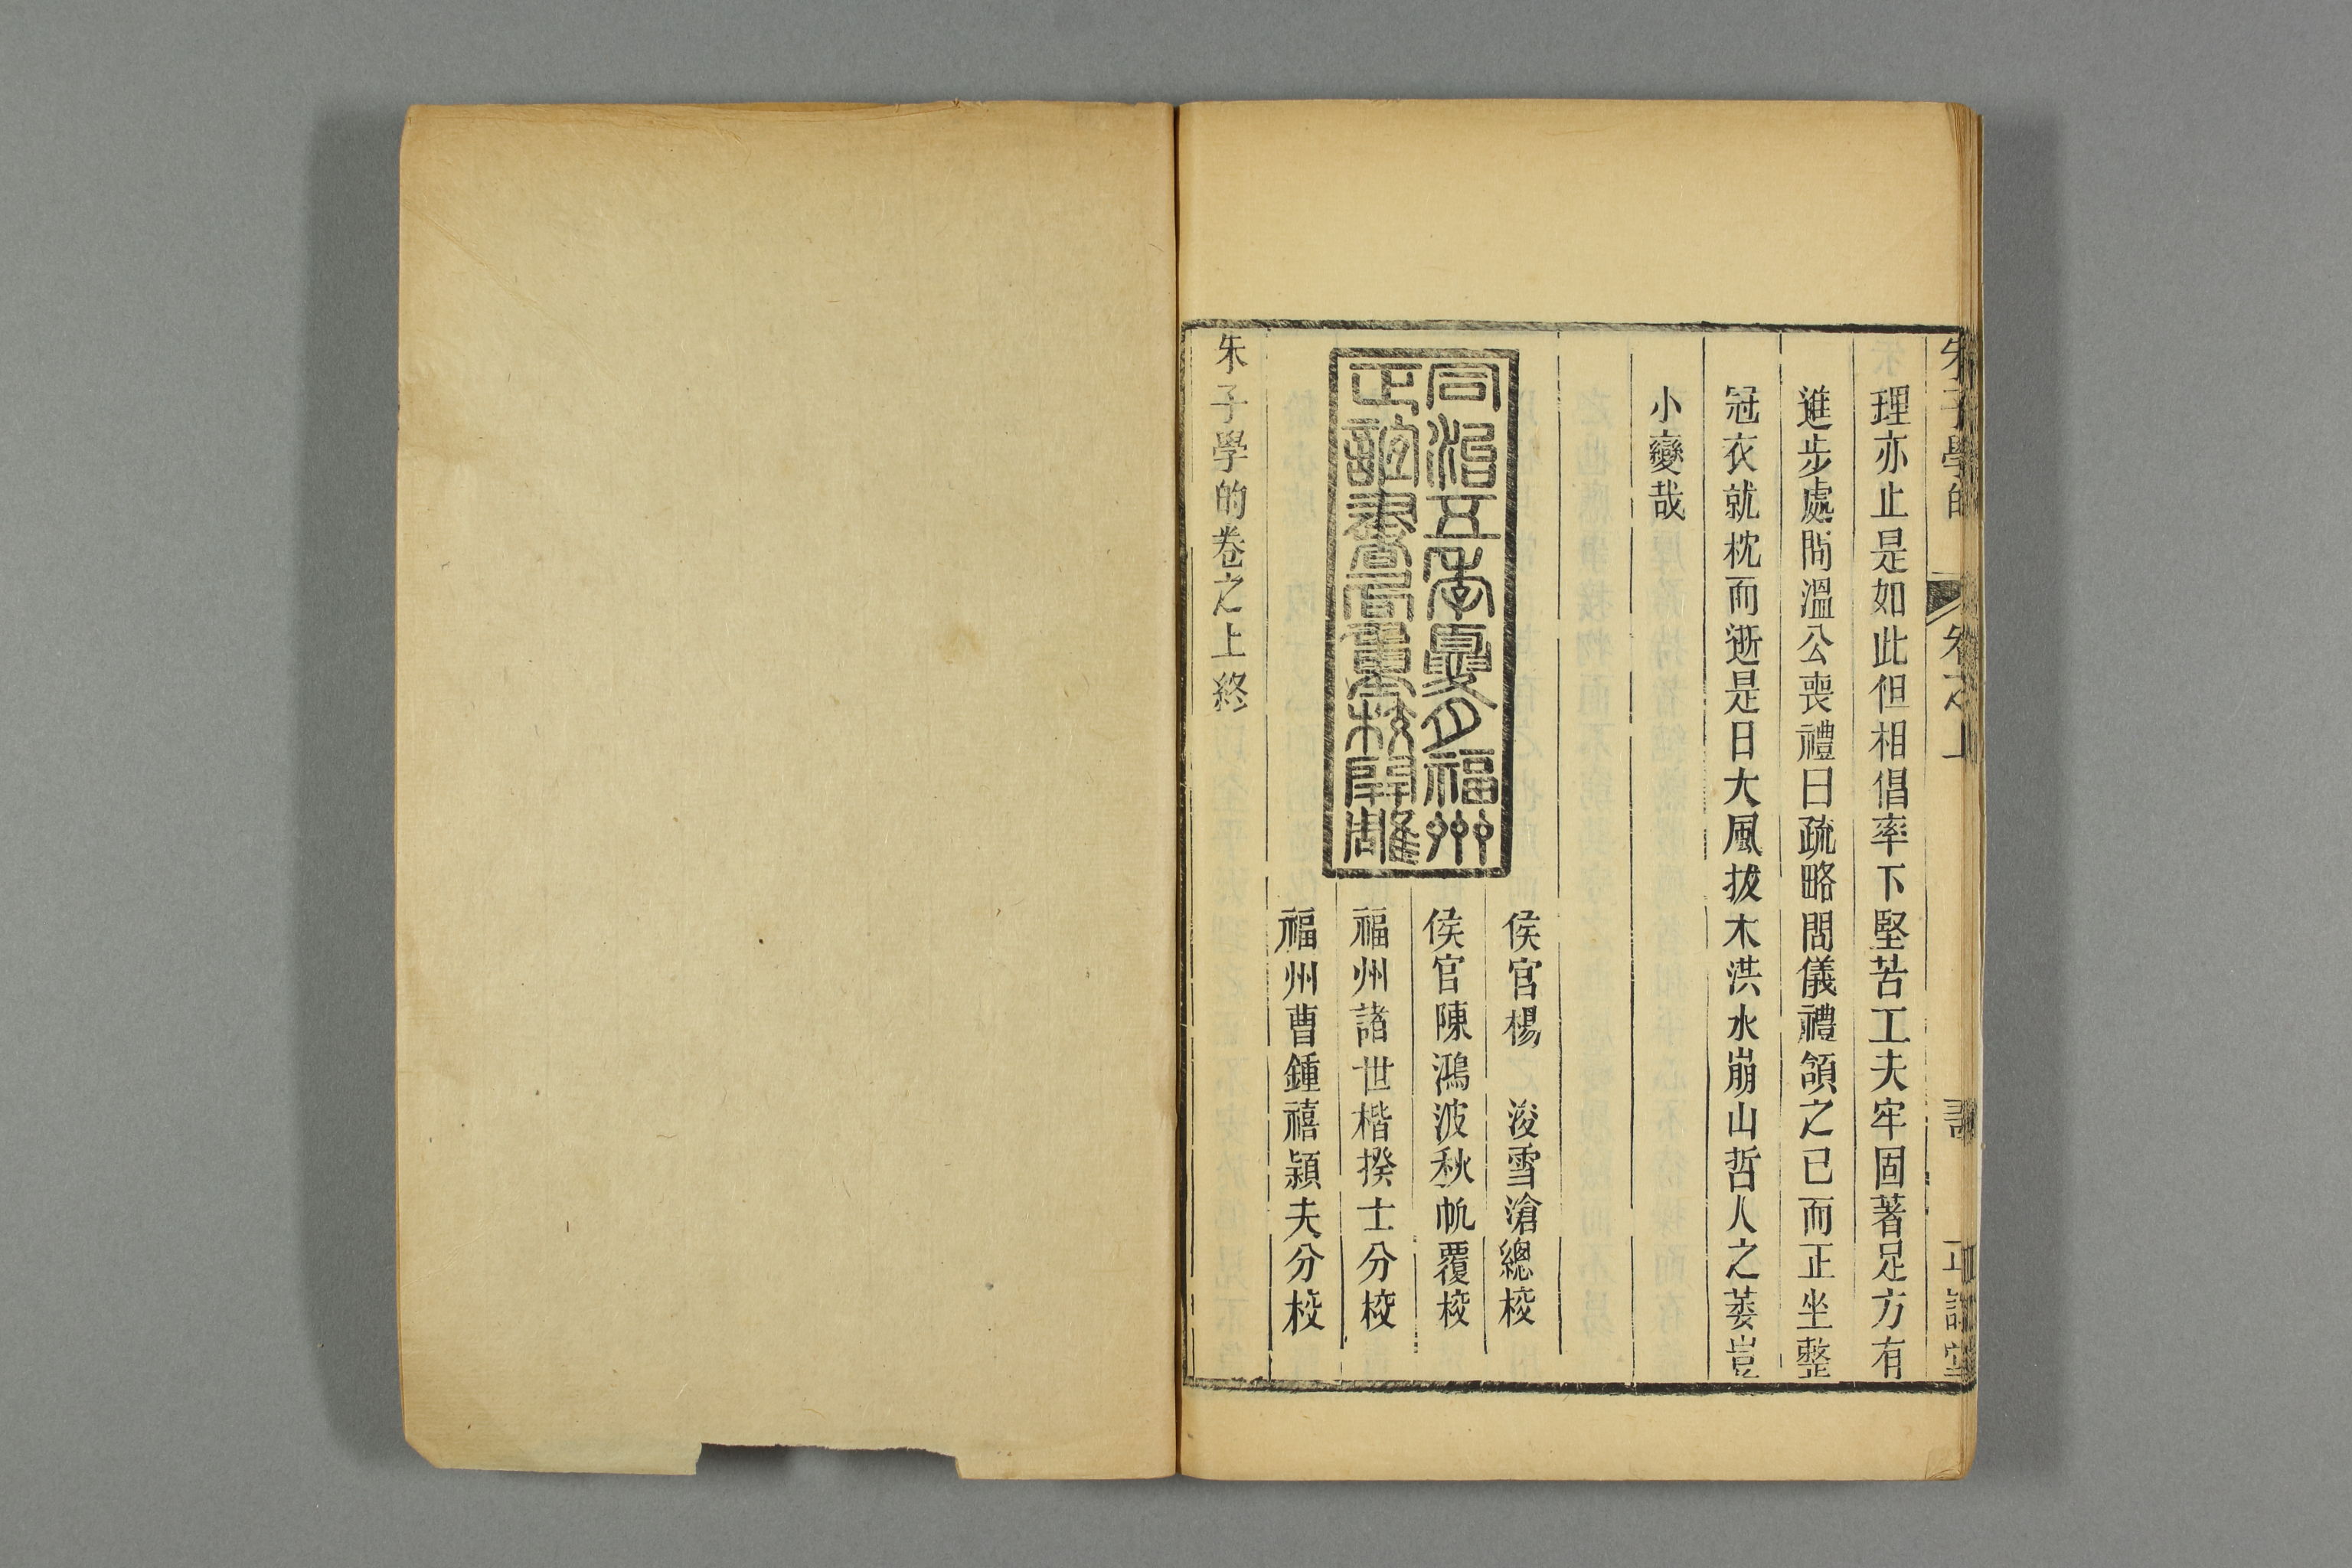 朱子學的 卷之上 正誼堂
理亦止是如此但相倡率下堅苦工夫牢固著足方有
進步處問溫公喪禮曰疏略問儀禮頷之已而正坐整
冠衣就枕而逝是日大風拔木洪水崩山哲人之萎豈
小變哉
同治五年夏月福州
正誼書局重校開雕
侯官楊 浚雪滄總校
侯官陳鴻波秋帆覆校
福州諸世楷揆士分校
福州曹鍾禧穎夫分校
朱子學的卷之上終